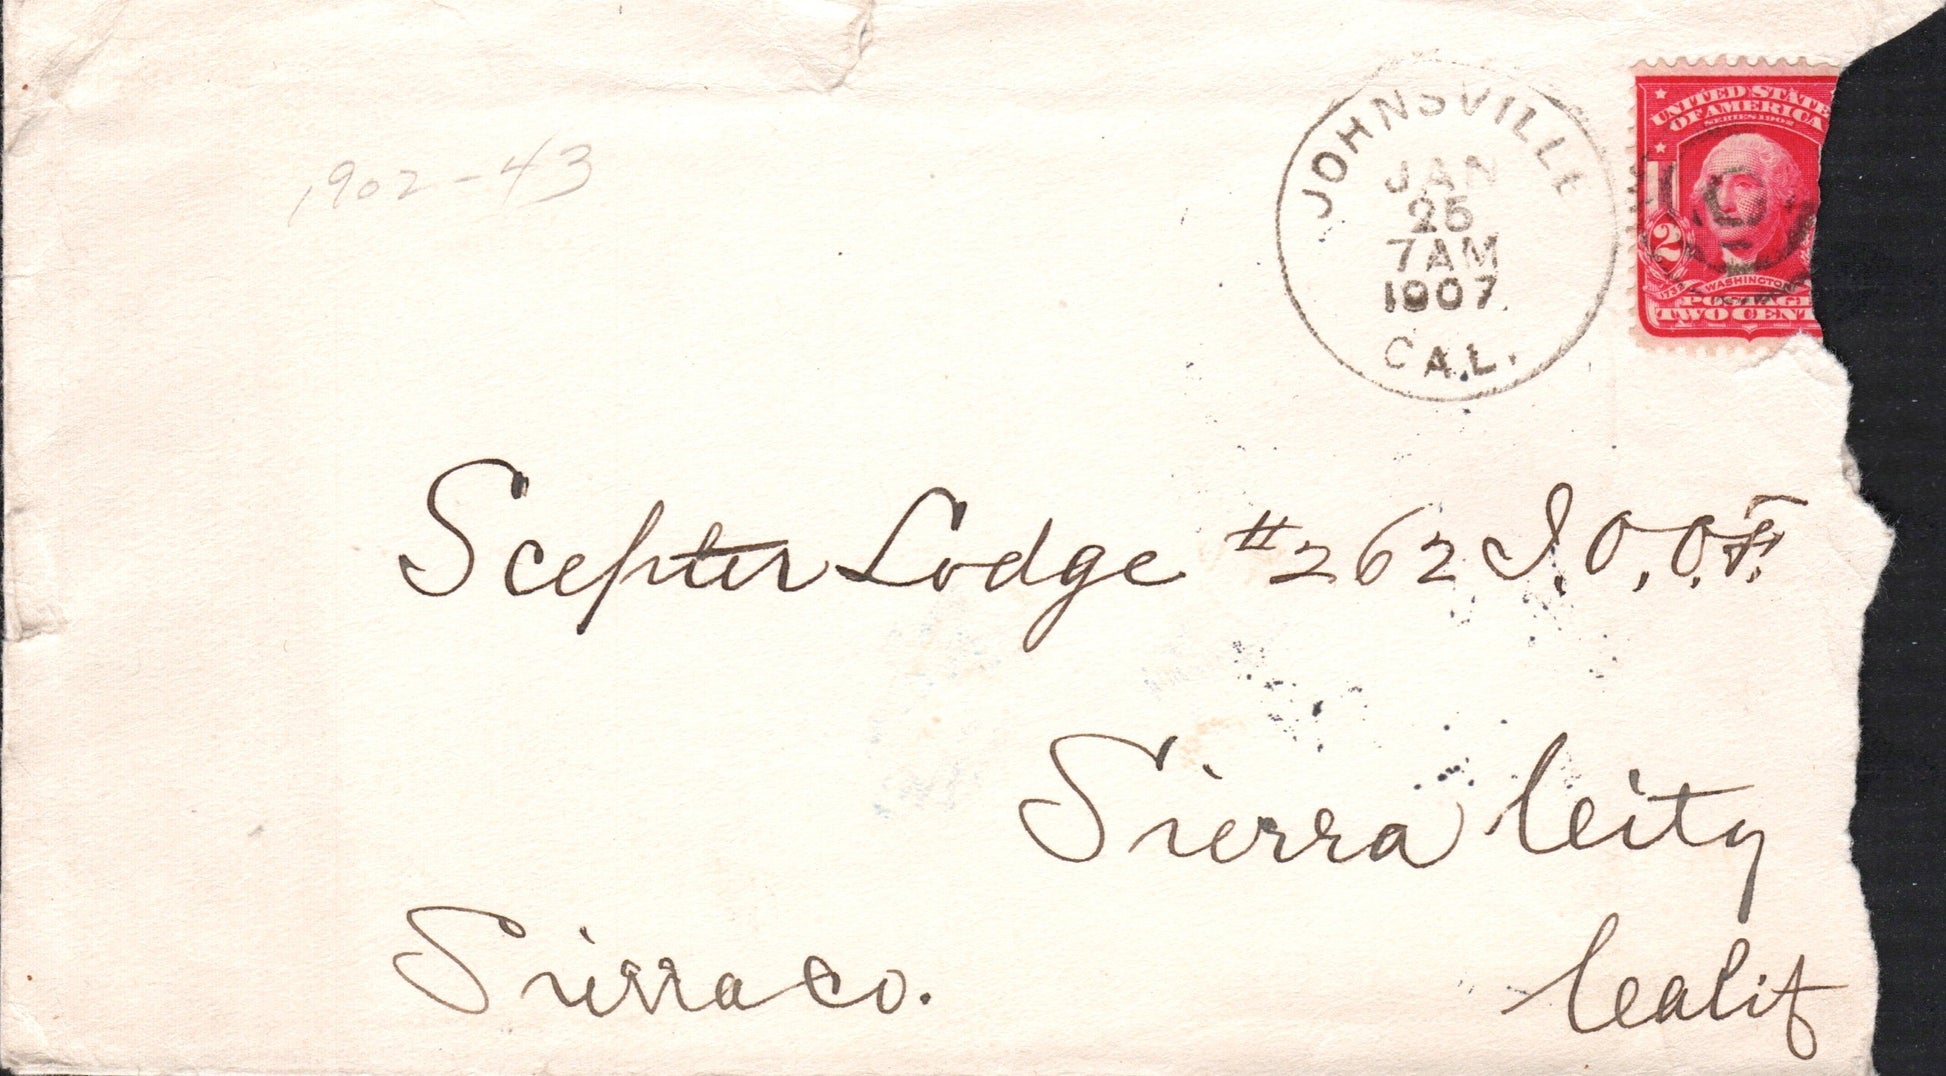 1902-43
JOHNSVILLE
JAN
25
7 AM
1907
CAL.
UNITED STATE
OF AMERICA
SERIES 1902
2
1732
WASHINGTON
POSTAGE
TWO CENT
Scepter Lodge #262 I.O.O.F.
Sierra City
Sierra Co.
Calif